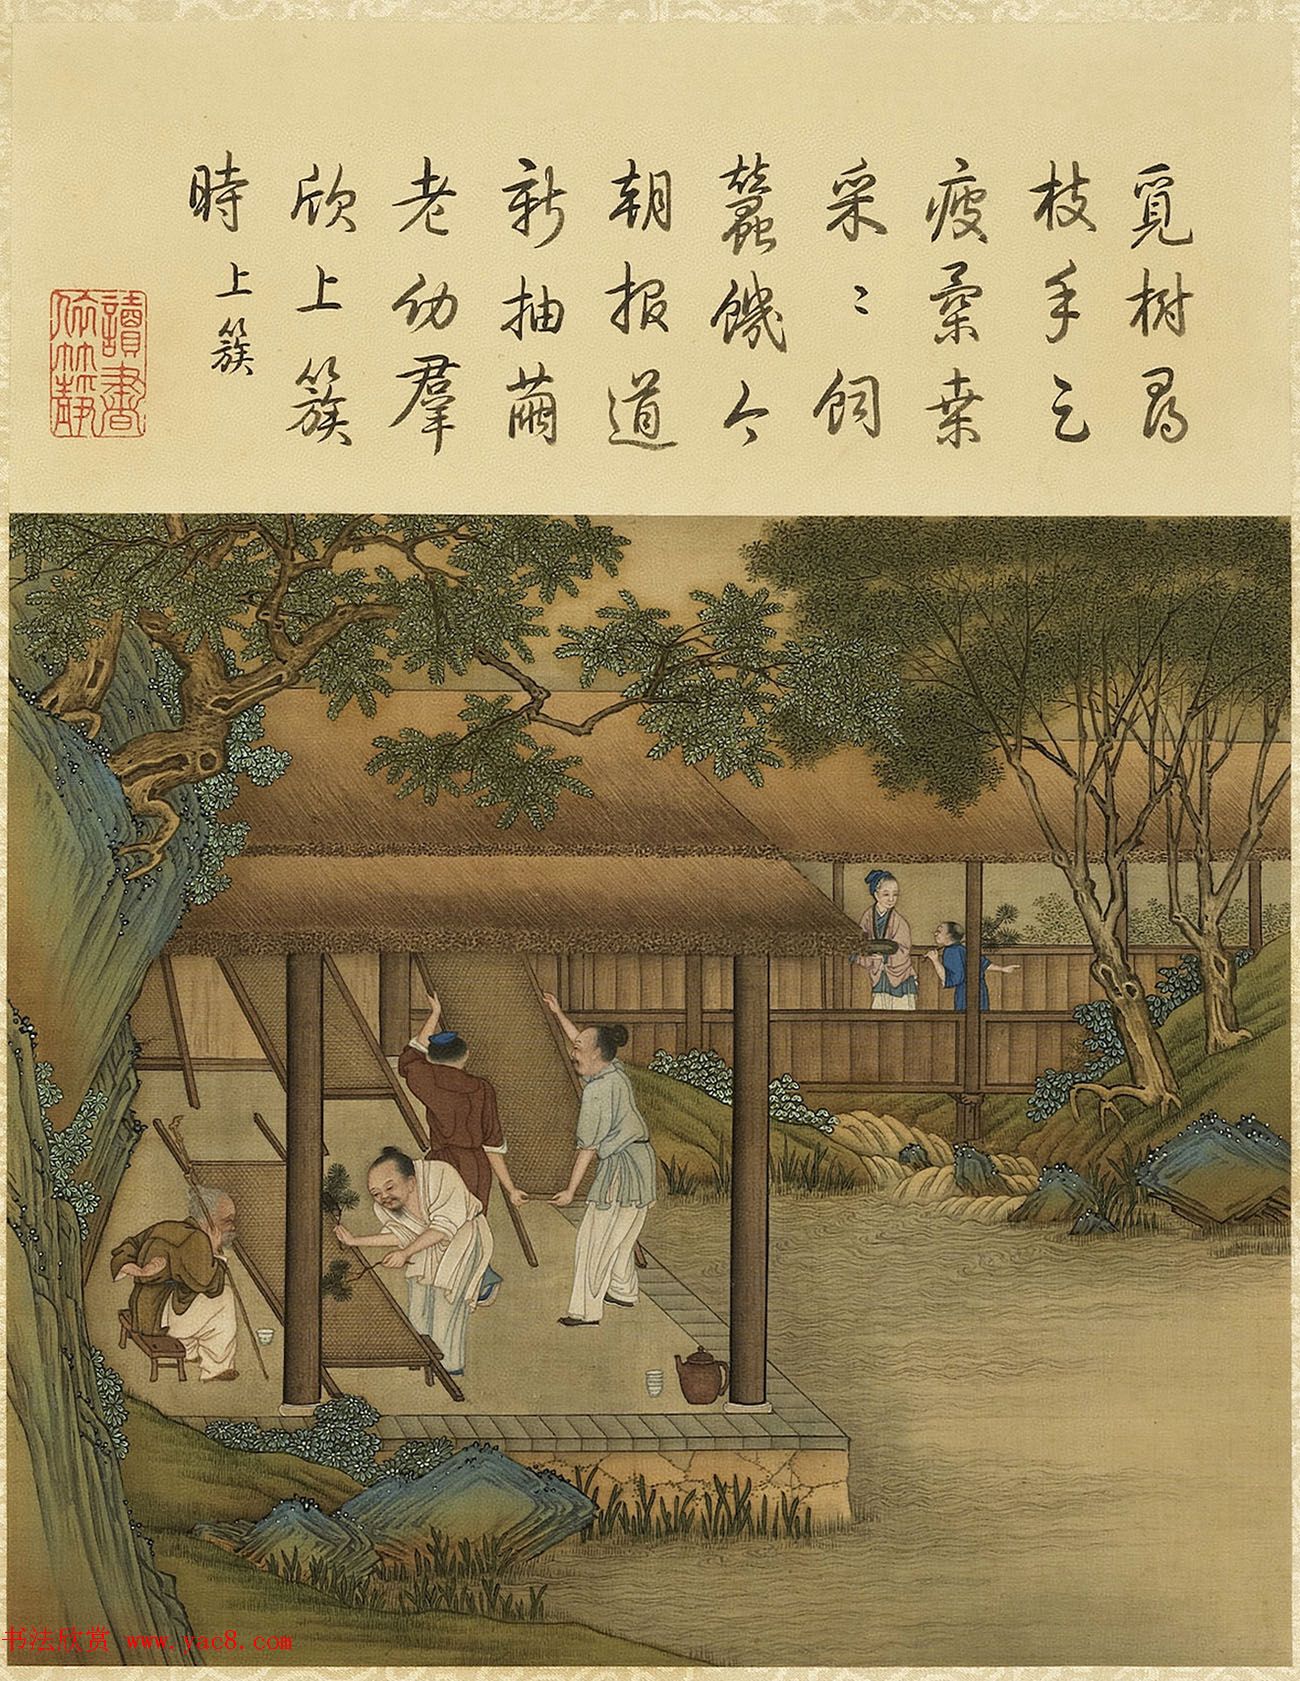 覓樹尋
枝手足
疲柔桒
采〻飼
蠶饑今
朝报道
新抽繭
老幼羣
欣上簇
時 上簇
讀書
依竹靜
书法欣赏 www.yac8.com